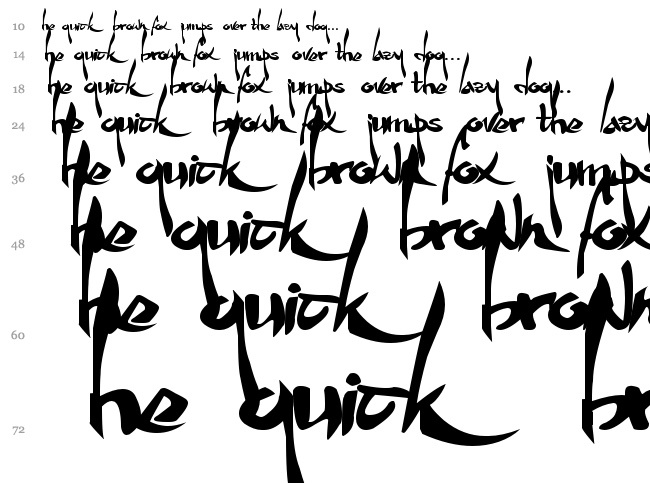 10 he quick brown fox jumps over the lazy dog...
14 he quick brown fox jumps over the lazy dog...
18 he quick brown fox jumps over the lazy dog...
24 he quick brown fox jumps over the lazy
36 he quick brown fox jumps
48 he quick brown fox
60 he quick brown
72 he quick br